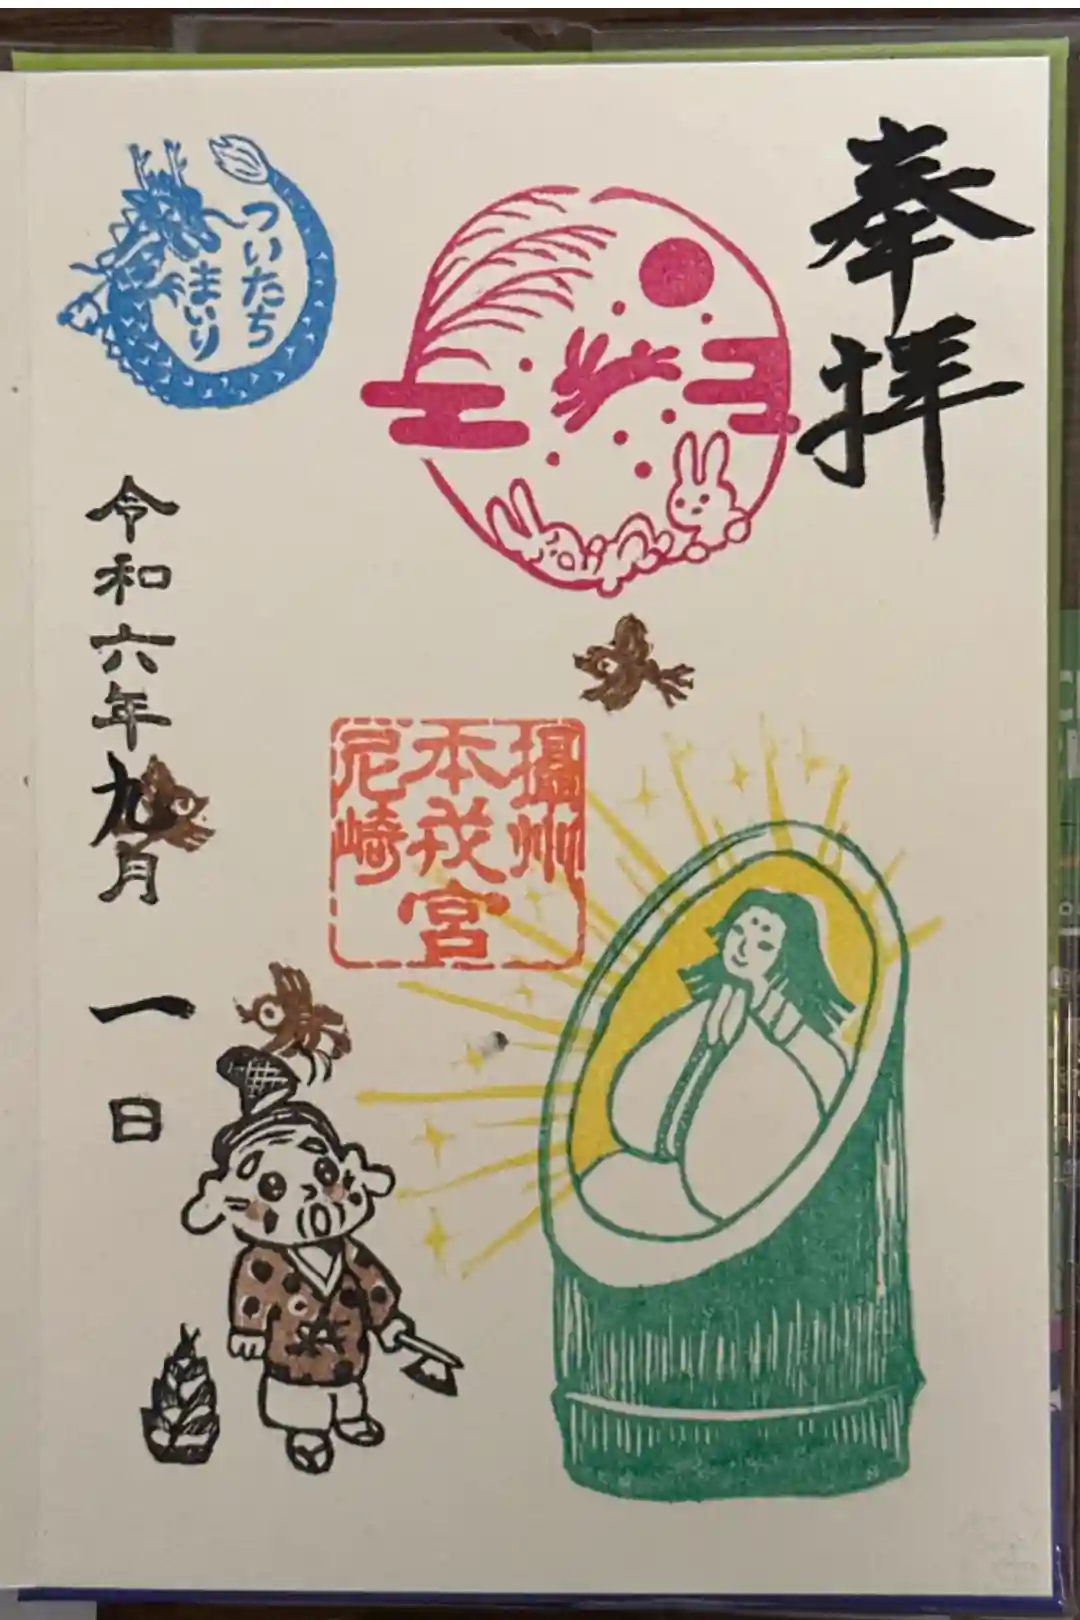 奉拝
攝州
本戎宮
尼崎
ついたち
まいり
令和六年九月一日